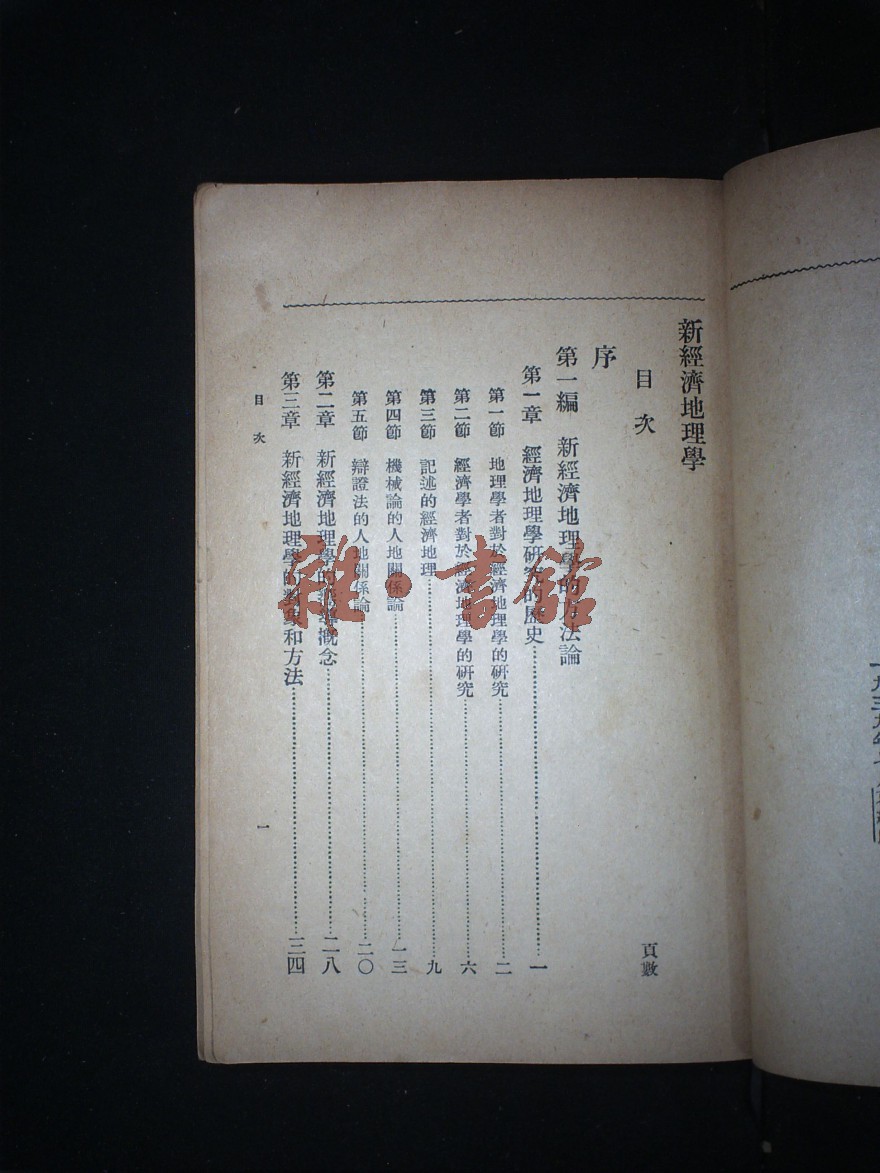 新經濟地理學
目次
頁數
序
第一編 新經濟地理學的方法論
第一章 經濟地理學研究的歷史……一
第一節 地理學者對於經濟地理學的研究……二
第二節 經濟學者對於經濟地理學的研究……六
第三節 記述的經濟地理……九
第四節 機械論的人地關係論……一三
第五節 辯證法的人地關係論……二〇
第二章 新經濟地理學的 概念……二八
第三章 新經濟地理學的對象和方法……三四
目次
一
雜·書館